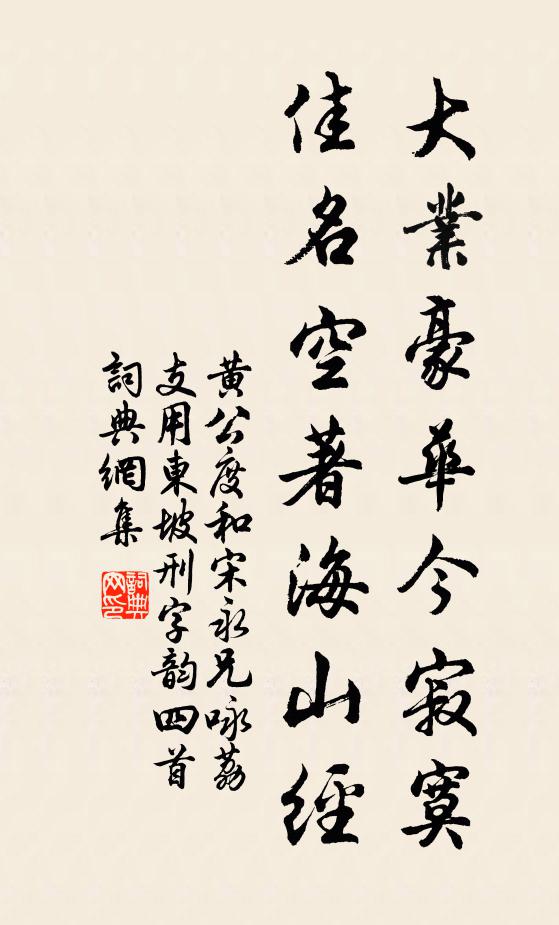 大業豪華今寂寞
佳名空著海山經
黃公度和宋永兄咏荔
支用東坡刑字韵四首
詞典網集
詞典網印